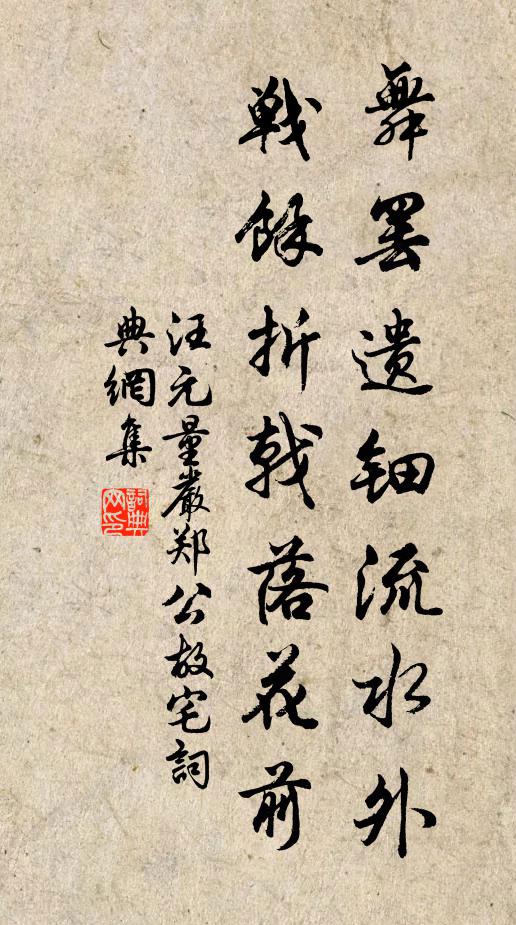 舞罢遗钿流水外
戦馀折戟落花前
汪元量嚴郑公故宅詞
典網集
詞典网印